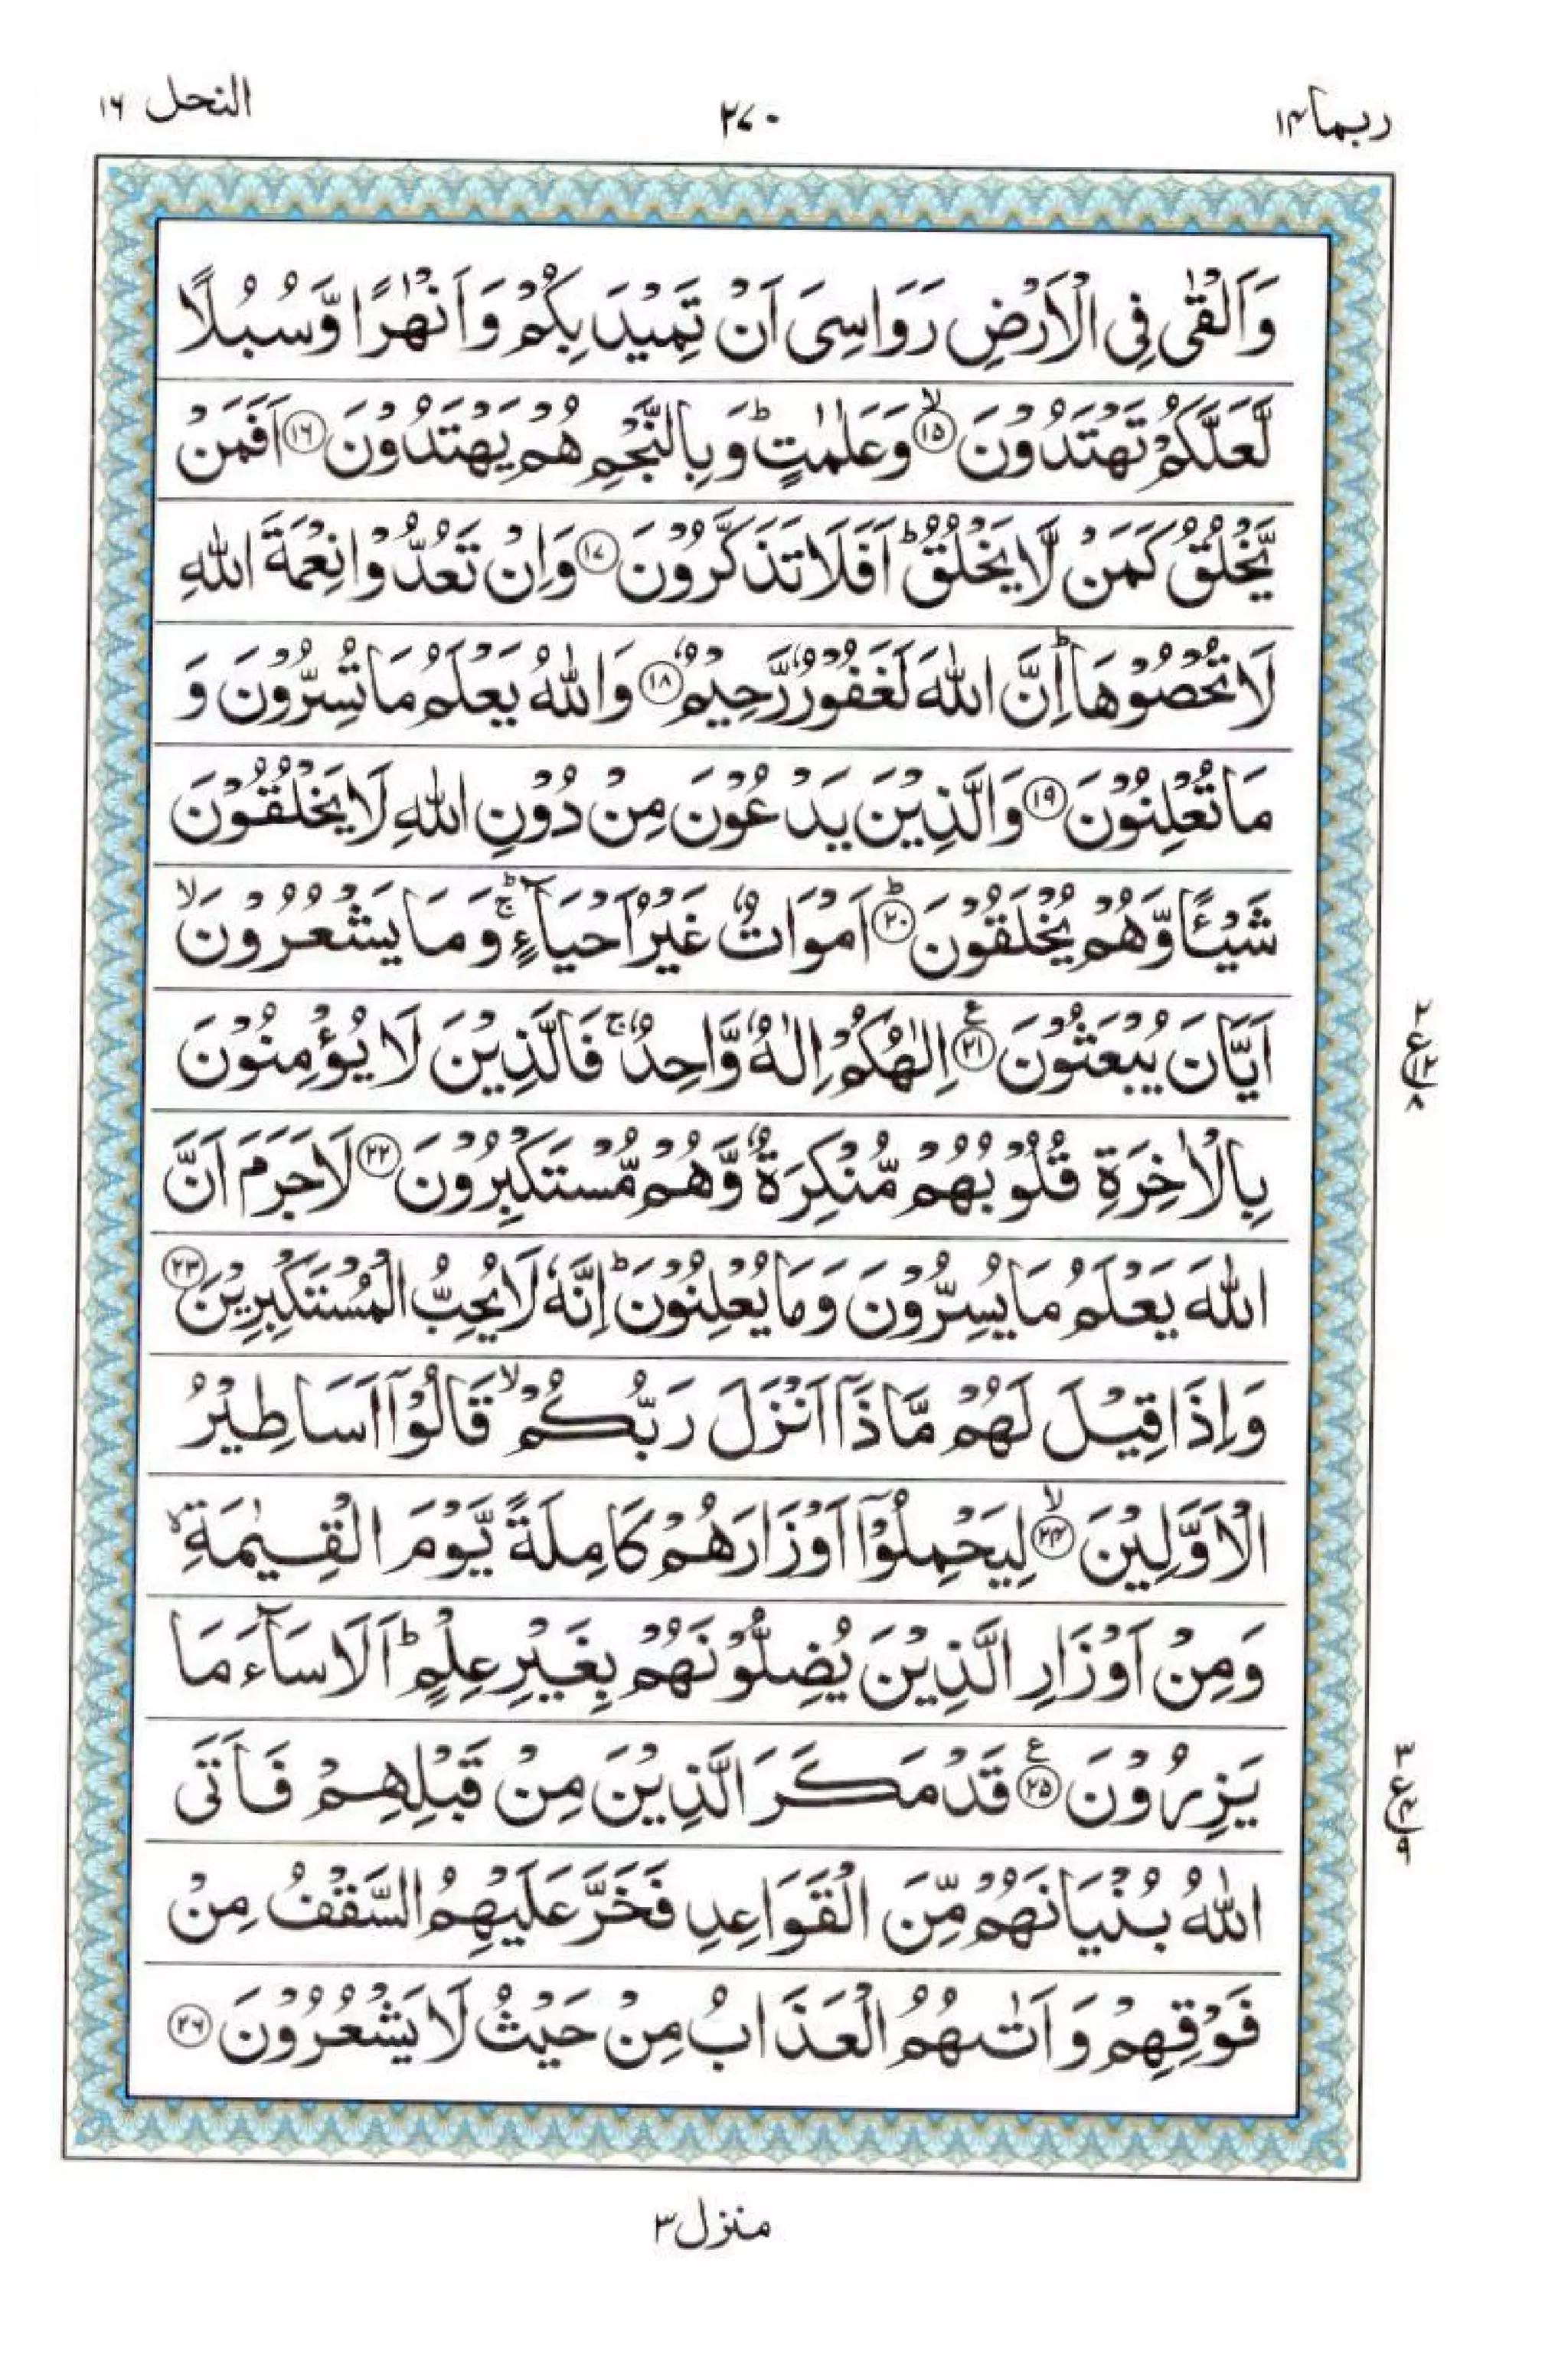 ربما ۱۴
۲۷۰
النحل ۱۶
وَاَلْقٰى فِى الْاَرْضِ رَوَاسِىَ اَنْ تَمِيْدَ بِكُمْ وَاَنْهٰرًا وَّسُبُلًا
لَّعَلَّكُمْ تَهْتَدُوْنَ ۙ‏﴿۱۵﴾ وَعَلٰمٰتٍ ؕ وَبِالنَّجْمِ هُمْ يَهْتَدُوْنَ ﴿۱۶﴾ اَفَمَنْ
يَّخْلُقُ كَمَنْ لَّا يَخْلُقُ ؕ اَفَلَا تَذَكَّرُوْنَ ﴿۱۷﴾ وَاِنْ تَعُدُّوْا نِعْمَةَ اللّٰهِ
لَا تُحْصُوْهَا ؕ اِنَّ اللّٰهَ لَغَفُوْرٌ رَّحِيْمٌ ﴿۱۸﴾ وَاللّٰهُ يَعْلَمُ مَا تُسِرُّوْنَ وَ
مَا تُعْلِنُوْنَ ﴿۱۹﴾ وَالَّذِيْنَ يَدْعُوْنَ مِنْ دُوْنِ اللّٰهِ لَا يَخْلُقُوْنَ
شَيْـًٔا وَّهُمْ يُخْلَقُوْنَ ؕ ﴿۲۰﴾ اَمْوَاتٌ غَيْرُ اَحْيَآءٍ ۚؕ وَمَا يَشْعُرُوْنَ ۙ
اَيَّانَ يُبْعَثُوْنَ ﴿۲۱﴾ ع اِلٰهُكُمْ اِلٰهٌ وَّاحِدٌ ۚ فَالَّذِيْنَ لَا يُؤْمِنُوْنَ
۲ ع ۱۲ ۸
بِالْاٰخِرَةِ قُلُوْبُهُمْ مُّنْكِرَةٌ وَّهُمْ مُّسْتَكْبِرُوْنَ ﴿۲۲﴾ لَا جَرَمَ اَنَّ
اللّٰهَ يَعْلَمُ مَا يُسِرُّوْنَ وَمَا يُعْلِنُوْنَ ؕ اِنَّهٗ لَا يُحِبُّ الْمُسْتَكْبِرِيْنَ ﴿۲۳﴾
وَاِذَا قِيْلَ لَهُمْ مَّاذَاۤ اَنْزَلَ رَبُّكُمْ ۙ قَالُوْۤا اَسَاطِيْرُ
الْاَوَّلِيْنَ ۙ ﴿۲۴﴾ لِيَحْمِلُوْۤا اَوْزَارَهُمْ كَامِلَةً يَّوْمَ الْقِيٰمَةِ ۙ
وَمِنْ اَوْزَارِ الَّذِيْنَ يُضِلُّوْنَهُمْ بِغَيْرِ عِلْمٍ ؕ اَلَا سَآءَ مَا
يَزِرُوْنَ ﴿۲۵﴾ ع قَدْ مَكَرَ الَّذِيْنَ مِنْ قَبْلِهِمْ فَاَتَى
۳ ع ۴ ۹
اللّٰهُ بُنْيَانَهُمْ مِّنَ الْقَوَاعِدِ فَخَرَّ عَلَيْهِمُ السَّقْفُ مِنْ
فَوْقِهِمْ وَاَتٰىهُمُ الْعَذَابُ مِنْ حَيْثُ لَا يَشْعُرُوْنَ ﴿۲۶﴾
منزل ۳